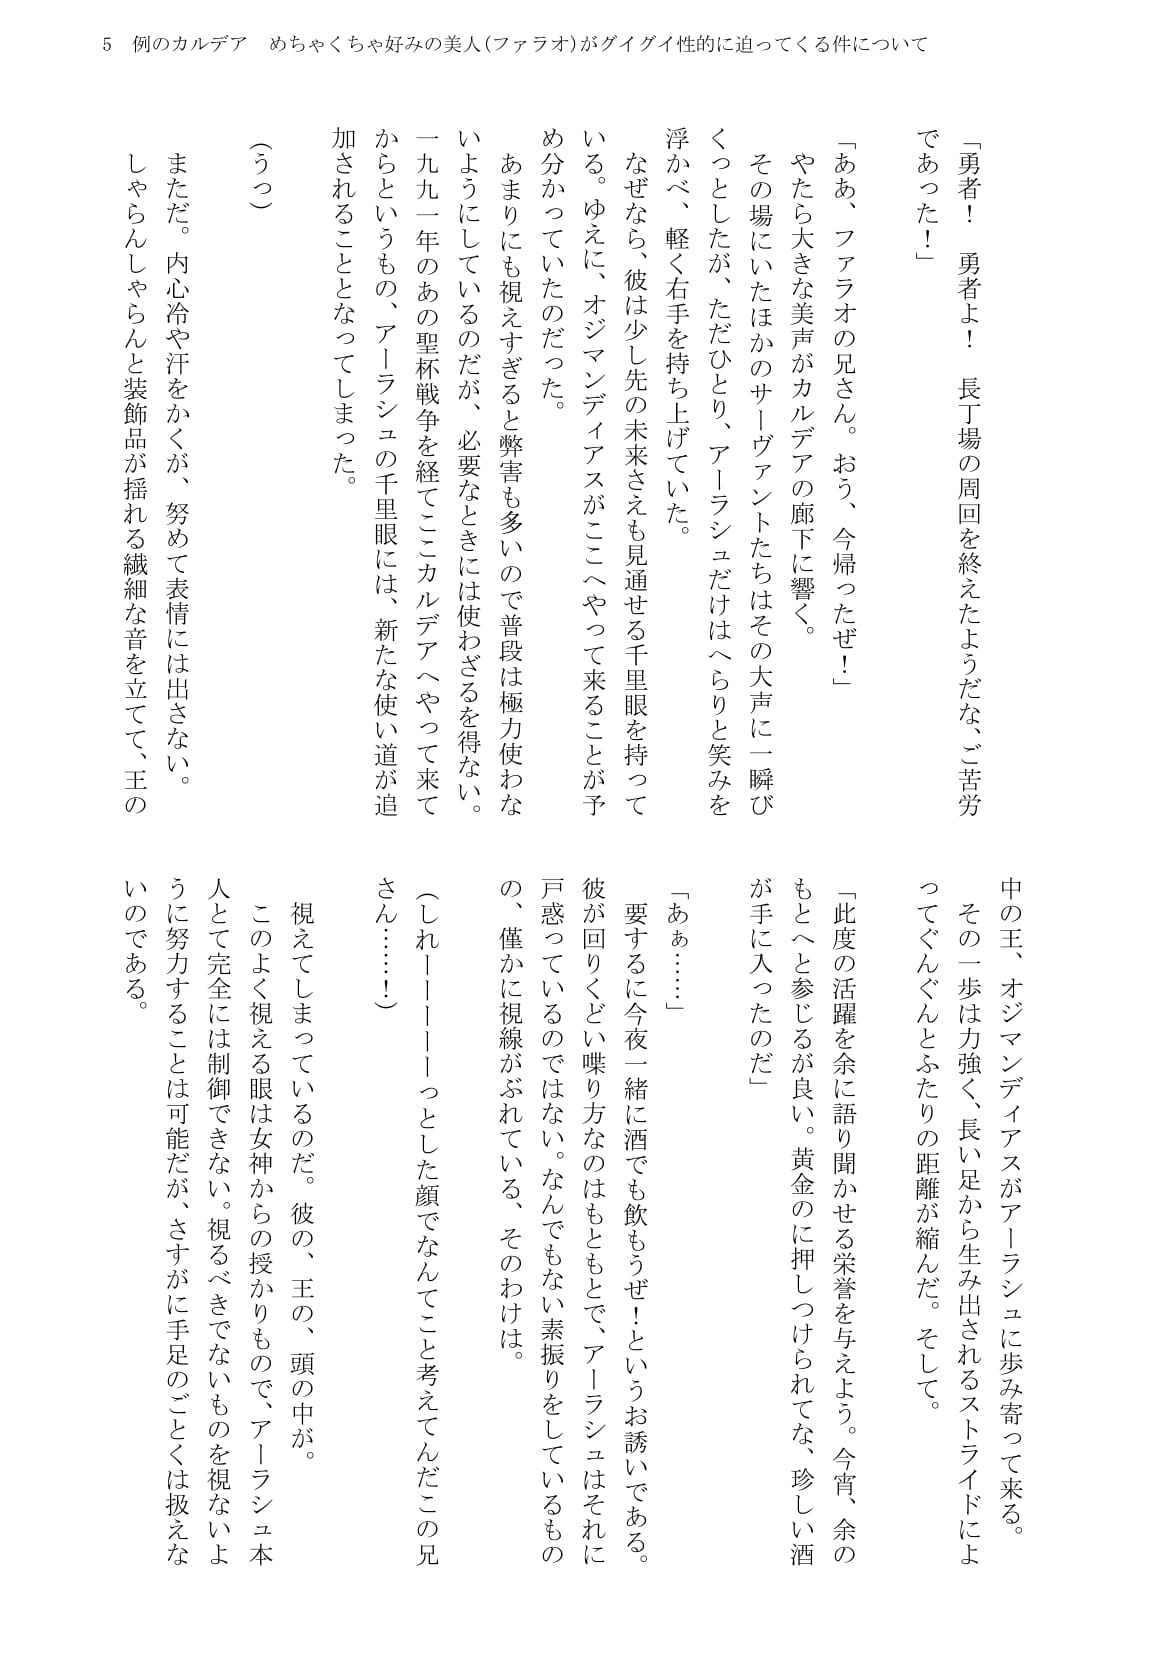 5　例のカルデア　めちゃくちゃ好みの美人(ファラオ)がグイグイ性的に迫ってくる件について
「勇者！　勇者よ！　長丁場の周回を終えたようだな、ご苦労
であった！」
「ああ、ファラオの兄さん。おう、今帰ったぜ！」
　やたら大きな美声がカルデアの廊下に響く。
　その場にいたほかのサーヴァントたちはその大声に一瞬び
くっとしたが、ただひとり、アーラシュだけはへらりと笑みを
浮かべ、軽く右手を持ち上げていた。
　なぜなら、彼は少し先の未来さえも見通せる千里眼を持って
いる。ゆえに、オジマンディアスがここへやって来ることが予
め分かっていたのだった。
　あまりにも視えすぎると弊害も多いので普段は極力使わな
いようにしているのだが、必要なときには使わざるを得ない。
一九九一年のあの聖杯戦争を経てここカルデアへやって来て
からというもの、アーラシュの千里眼には、新たな使い道が追
加されることとなってしまった。
（うっ）
　まただ。内心冷や汗をかくが、努めて表情には出さない。
　しゃらんしゃらんと装飾品が揺れる繊細な音を立てて、王の
中の王、オジマンディアスがアーラシュに歩み寄って来る。
　その一歩は力強く、長い足から生み出されるストライドによ
ってぐんぐんとふたりの距離が縮んだ。そして。
「此度の活躍を余に語り聞かせる栄誉を与えよう。今宵、余の
もとへと参じるが良い。黄金のに押しつけられてな、珍しい酒
が手に入ったのだ」
「あぁ……」
　要するに今夜一緒に酒でも飲もうぜ！というお誘いである。
彼が回りくどい喋り方なのはもともとで、アーラシュはそれに
戸惑っているのではない。なんでもない素振りをしているもの
の、僅かに視線がぶれている、そのわけは。
（しれーーーーーっとした顔でなんてこと考えてんだこの兄
さん……！）
　視えてしまっているのだ。彼の、王の、頭の中が。
　このよく視える眼は女神からの授かりもので、アーラシュ本
人とて完全には制御できない。視るべきでないものを視ないよ
うに努力することは可能だが、さすがに手足のごとくは扱えな
いのである。